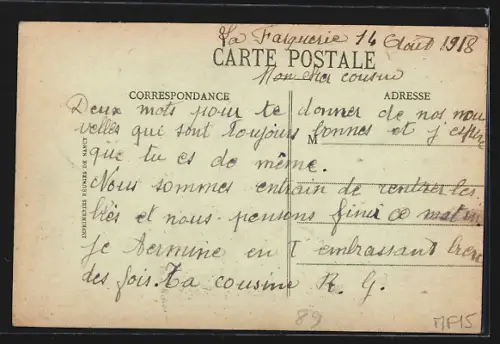 La Faiguerie 14 Août 1918
CARTE POSTALE
Mon cher cousin
CORRESPONDANCE
ADRESSE
Deux mots pour te donner de nos nou
velles qui sont toujours bonnes et j'espère
M
que tu es de même.
Nous sommes entrain de rentrer les
blés et nous pensons finir ce matin
Je termine en T embrassant bien
des fois. Ta cousine R. G.
IMPRIMERIES RÉUNIES DE NANCY
89
MF15